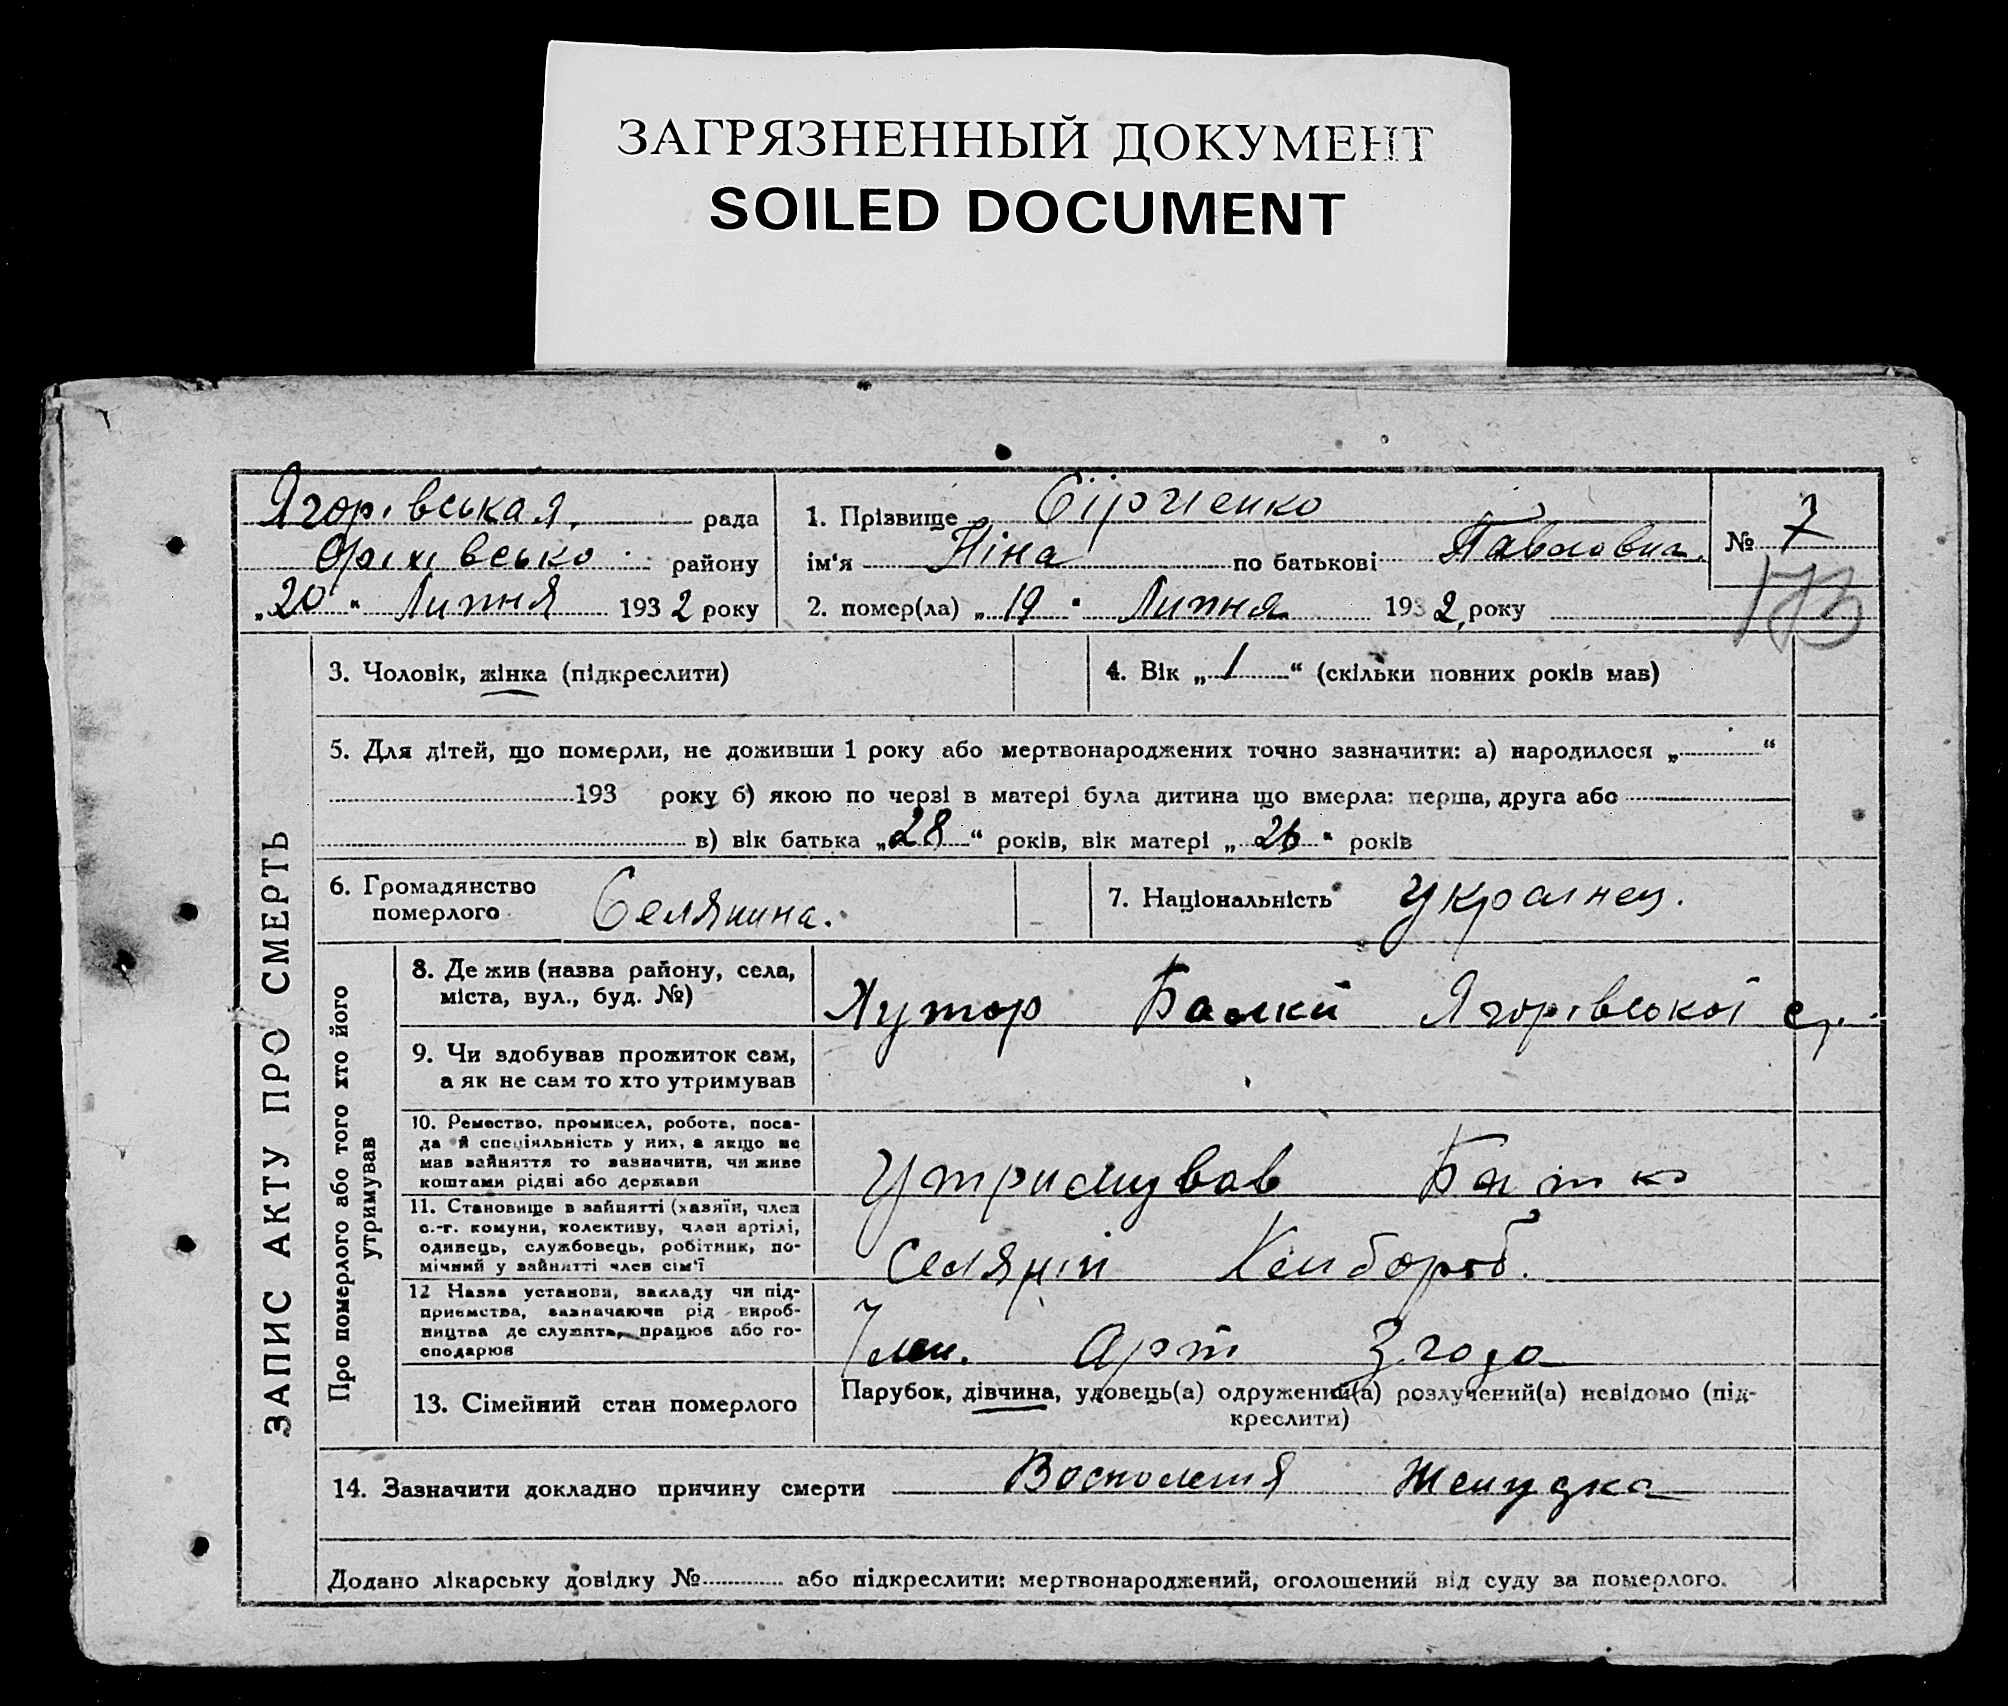 ЗАГРЯЗНЕННЫЙ ДОКУМЕНТ
SOILED DOCUMENT
Ягорівськая, рада
Оріхівсько району
„20“ Липня 1932 року
1. Прізвище Сірченко
ім'я Ніна по батькові Павловна.
2. помер(ла) „19“ Липня 1932, року
№ 7
173
ЗАПИС АКТУ ПРО СМЕРТЬ
3. Чоловік, жінка (підкреслити)
4. Вік „1“ (скільки повних років мав)
5. Для дітей, що померли, не доживши 1 року або мертвонароджених точно зазначити: а) народилося „ “
193 року б) якою по черзі в матері була дитина що вмерла: перша, друга або
в) вік батька „28“ років, вік матері „26“ років
6. Громадянство
померлого Селянина.
7. Національність Украінец.
Про померлого або того хто його
утримував
8. Де жив (назва району, села,
міста, вул., буд. №)
Хутор Балки Ягорівської с/р.
9. Чи здобував прожиток сам,
а як не сам то хто утримував
10. Ремество, промисел, робота, поса-
да й спеціяльність у них, а якщо не
мав зайняття то зазначити, чи живе
коштами рідні або держави
Утримував Батко
11. Становище в зайнятті (хазяїн, член
с.-г. комуни, колективу, член артілі,
одинець, службовець, робітник, по-
мічний у зайнятті член сім'ї
Селянін Хлібороб.
12 Назва установи, закладу чи під-
приємства, зазначаючи рід вироб-
ництва де служить, працює або го-
сподарює
Член. Арт Згода
13. Сімейний стан померлого
Парубок, дівчина, удовець(а) одружений(а) розлучений(а) невідомо (під-
креслити)
14. Зазначити докладно причину смерти Восполения Желудка
Додано лікарську довідку № або підкреслити: мертвонароджений, оголошений від суду за померлого.